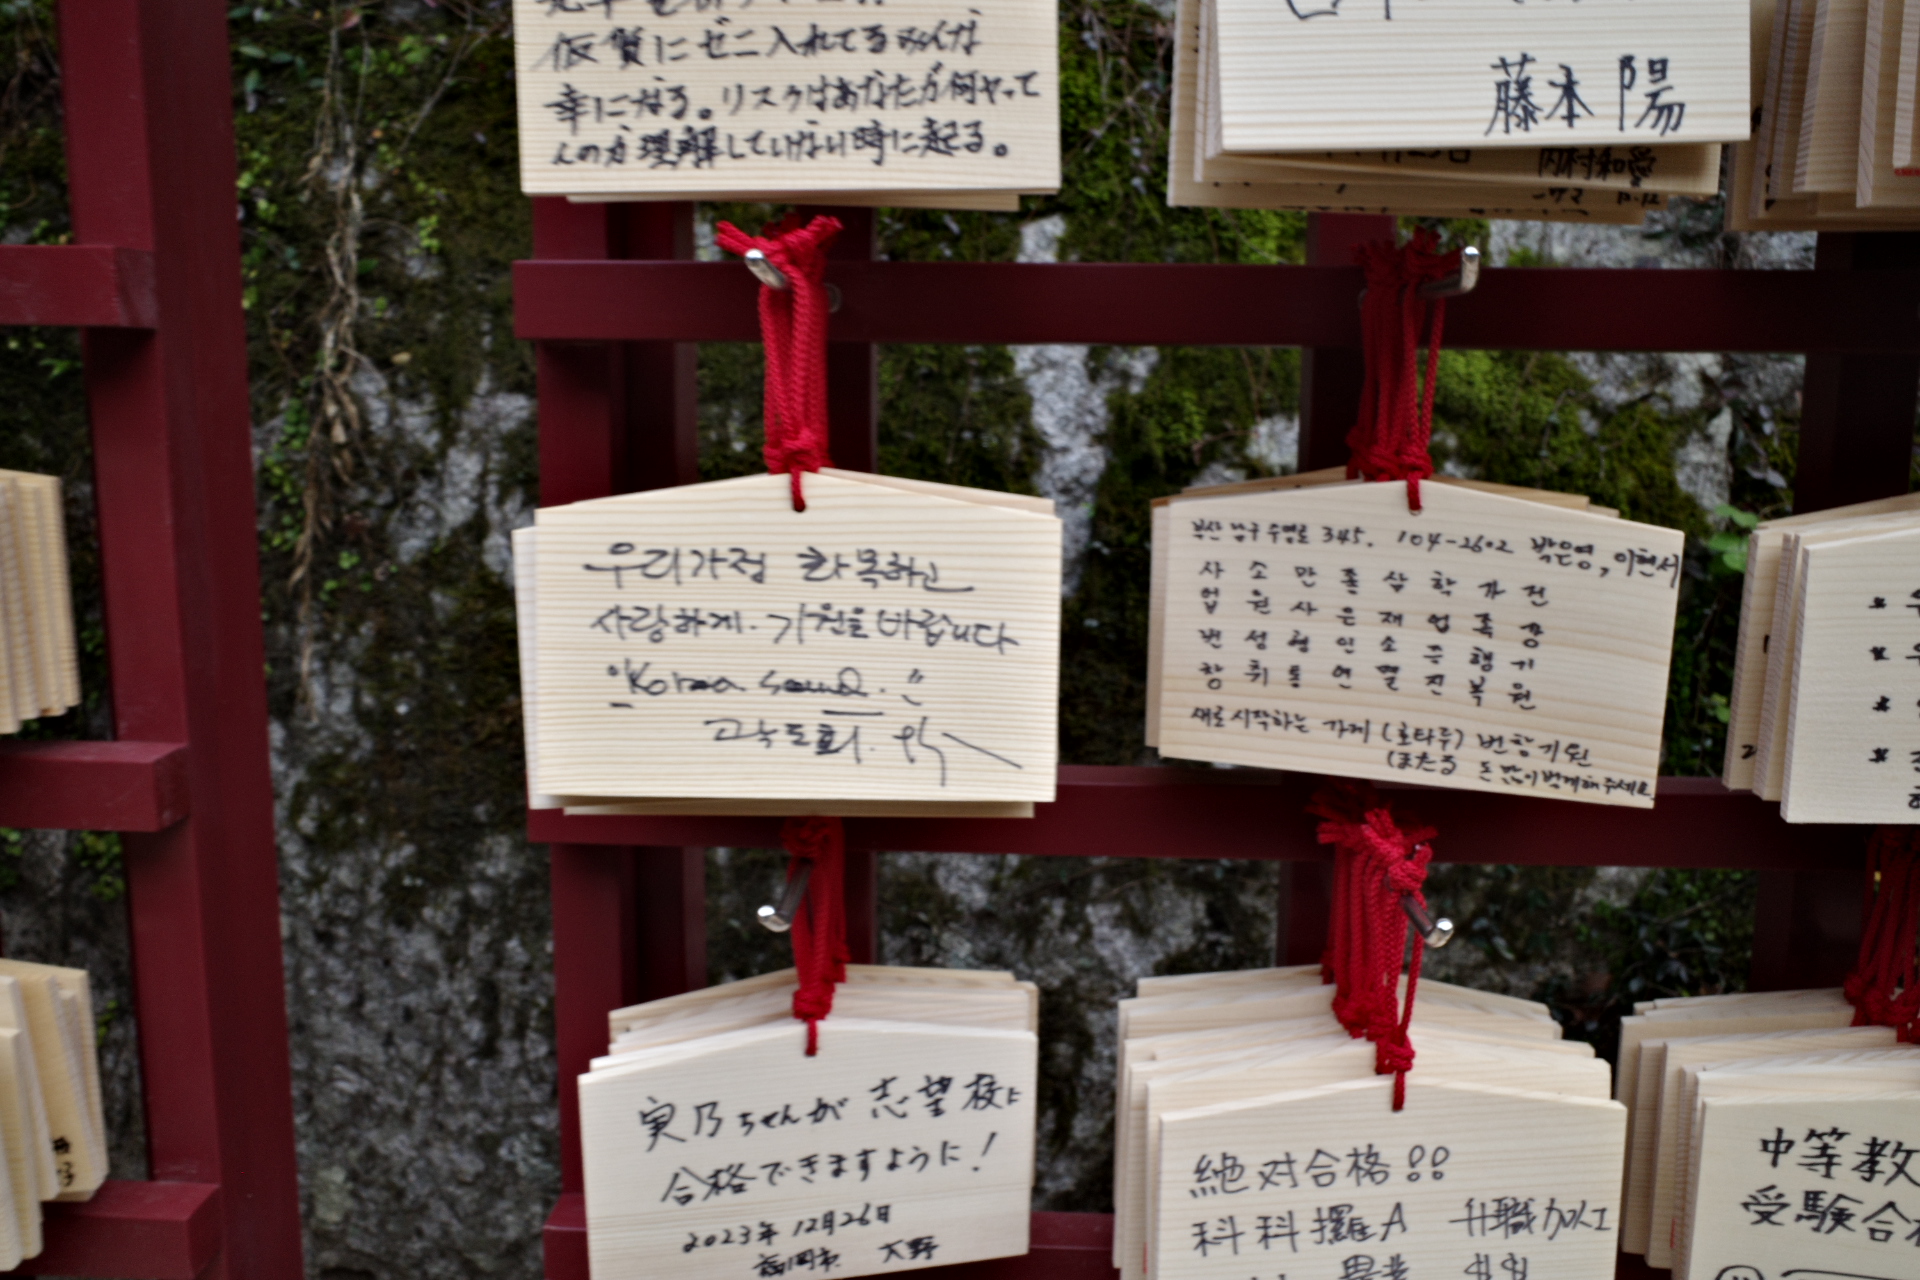 仮質にゼニ入れてるみんな
幸になる。リスクはあなたが何やって
んのか理解していない時に起る。
藤本 陽
우리가정 화목하고
사랑하게. 기원을 바랍니다
"Korea sound.
부산 남구 수영로 345. 104-2602 박은영, 이현서
사 소 만 족 삼 학 가 전
업 원 사 은 재 업 족 강
번 성 형 인 소 주 행 기
창 취 통 연 멸 진 복 원
새로 시작하는 가게 (호타루) 번창기원
(ほたる 돈 많이 벌게해 주세요
実乃ちゃんが 志望校に
合格できますように!
2023年 12月26日
福岡市 大野
絶対合格!!
科科攞A 升職加人工
中等教
受験合